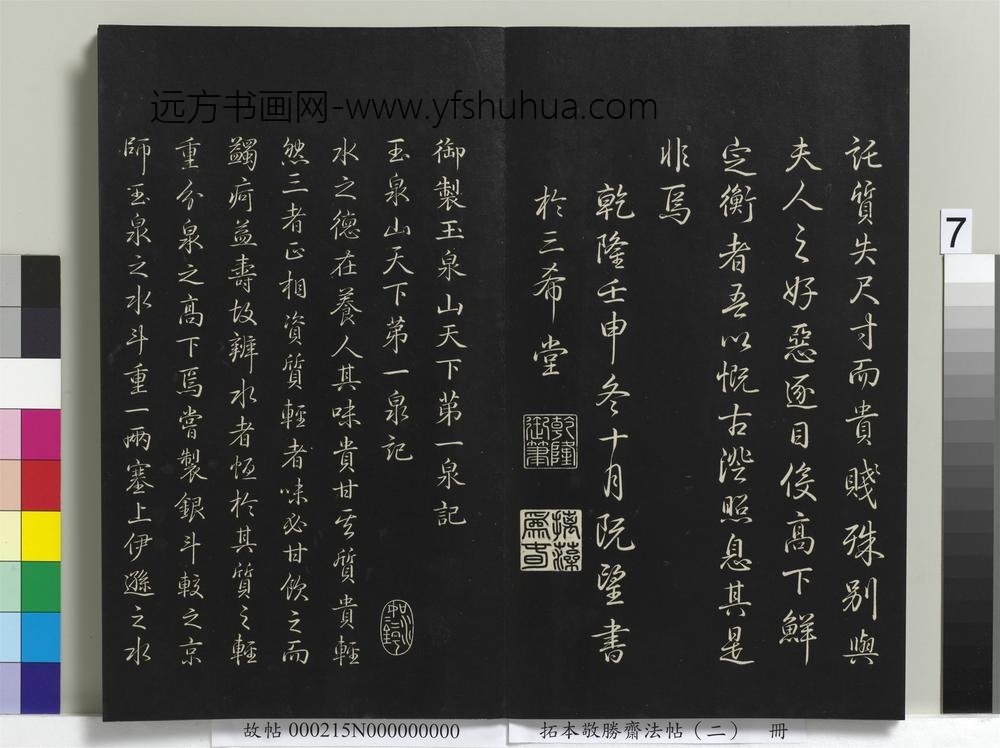 远方书画网-www.yfshuhua.com
託質失尺寸而貴賤殊別與
夫人之好惡逐目侫高下鮮
定衡者吾以慨古澄照息其是
非焉
乾隆壬申冬十月既望書
於三希堂
乾隆
御筆
摛藻
為春
御製玉泉山天下第一泉記
玉泉山天下第一泉記
水之德在養人其味貴甘其質貴輕
然三者正相資質輕者味必甘飲之而
蠲疴益壽故辨水者恒於其質之輕
重分泉之高下焉嘗製銀斗較之京
師玉泉之水斗重一兩塞上伊遜之水
7
故帖 000215N000000000
拓本敬勝齋法帖（二） 冊